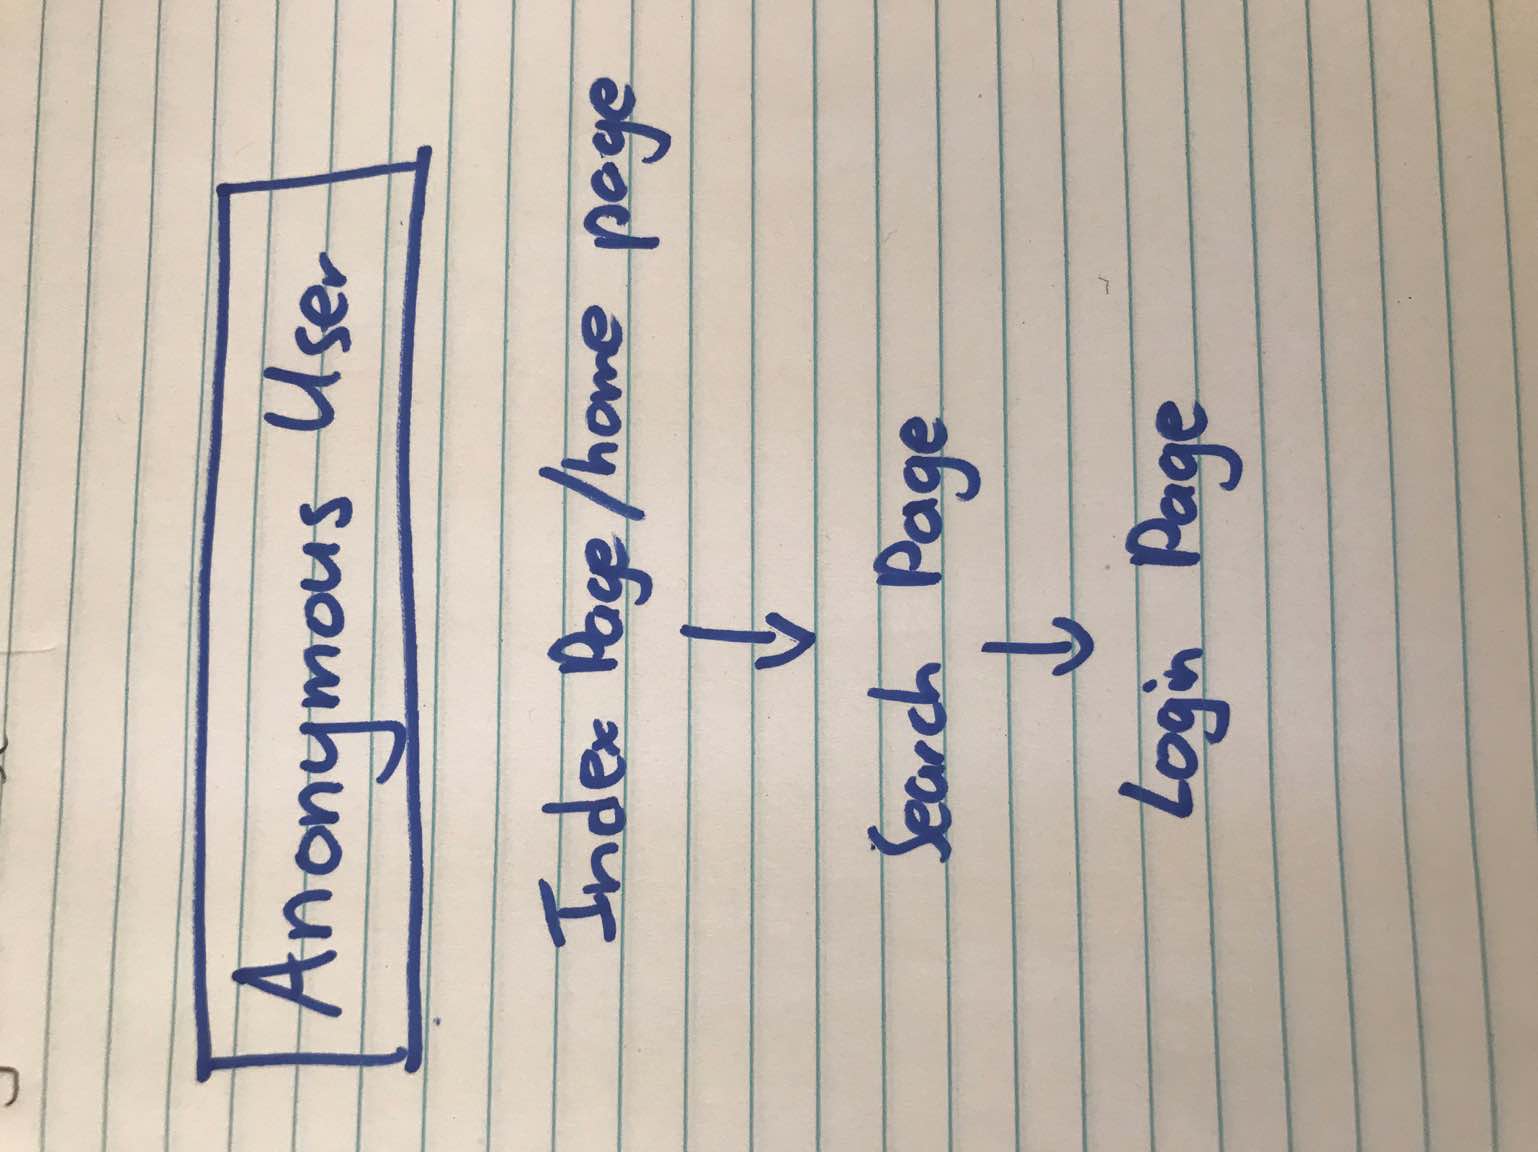 Anonymous User
Index Page/home page
↓
Search Page
↓
Login Page